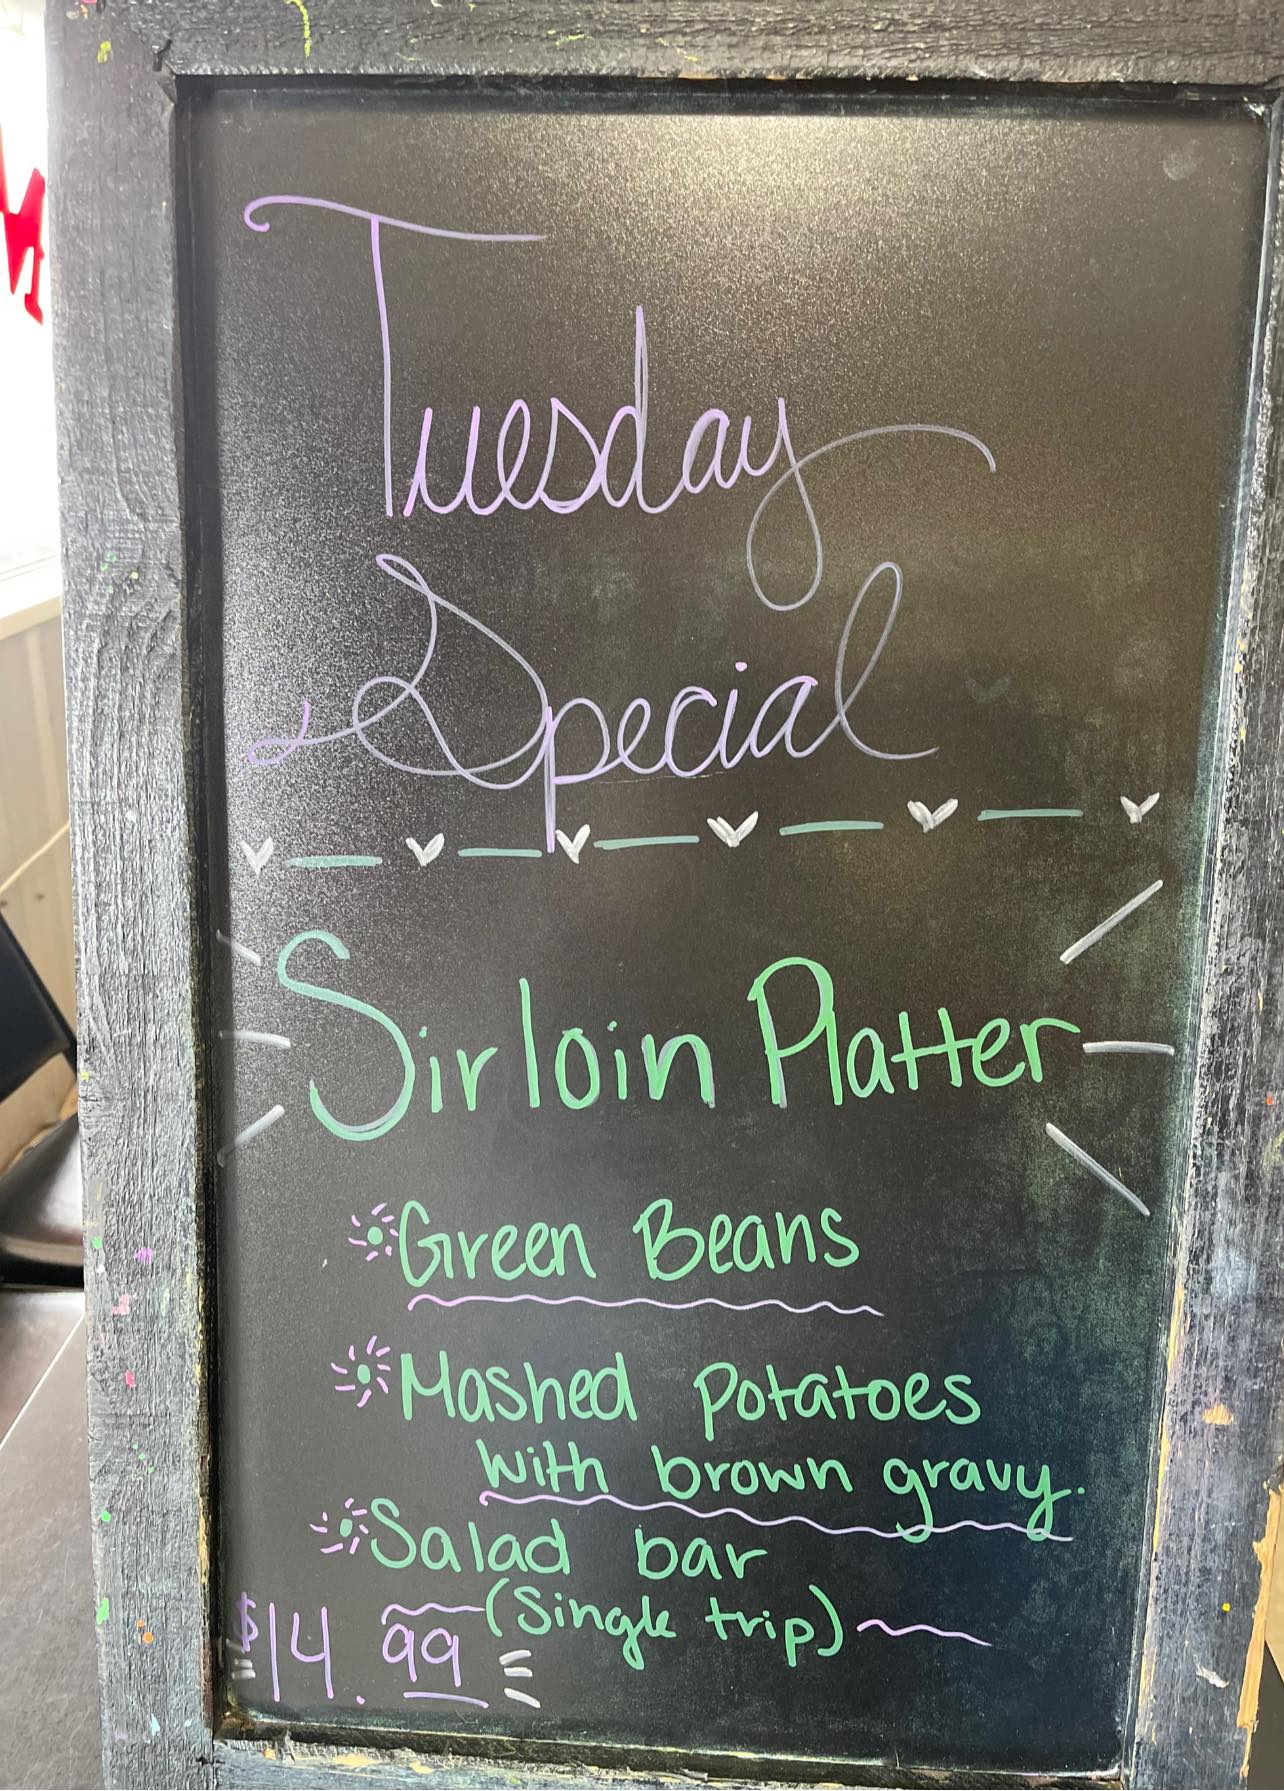 Tuesday
Special
Sirloin Platter
Green Beans
Mashed potatoes
with brown gravy.
Salad bar
(Single trip)
$14.99